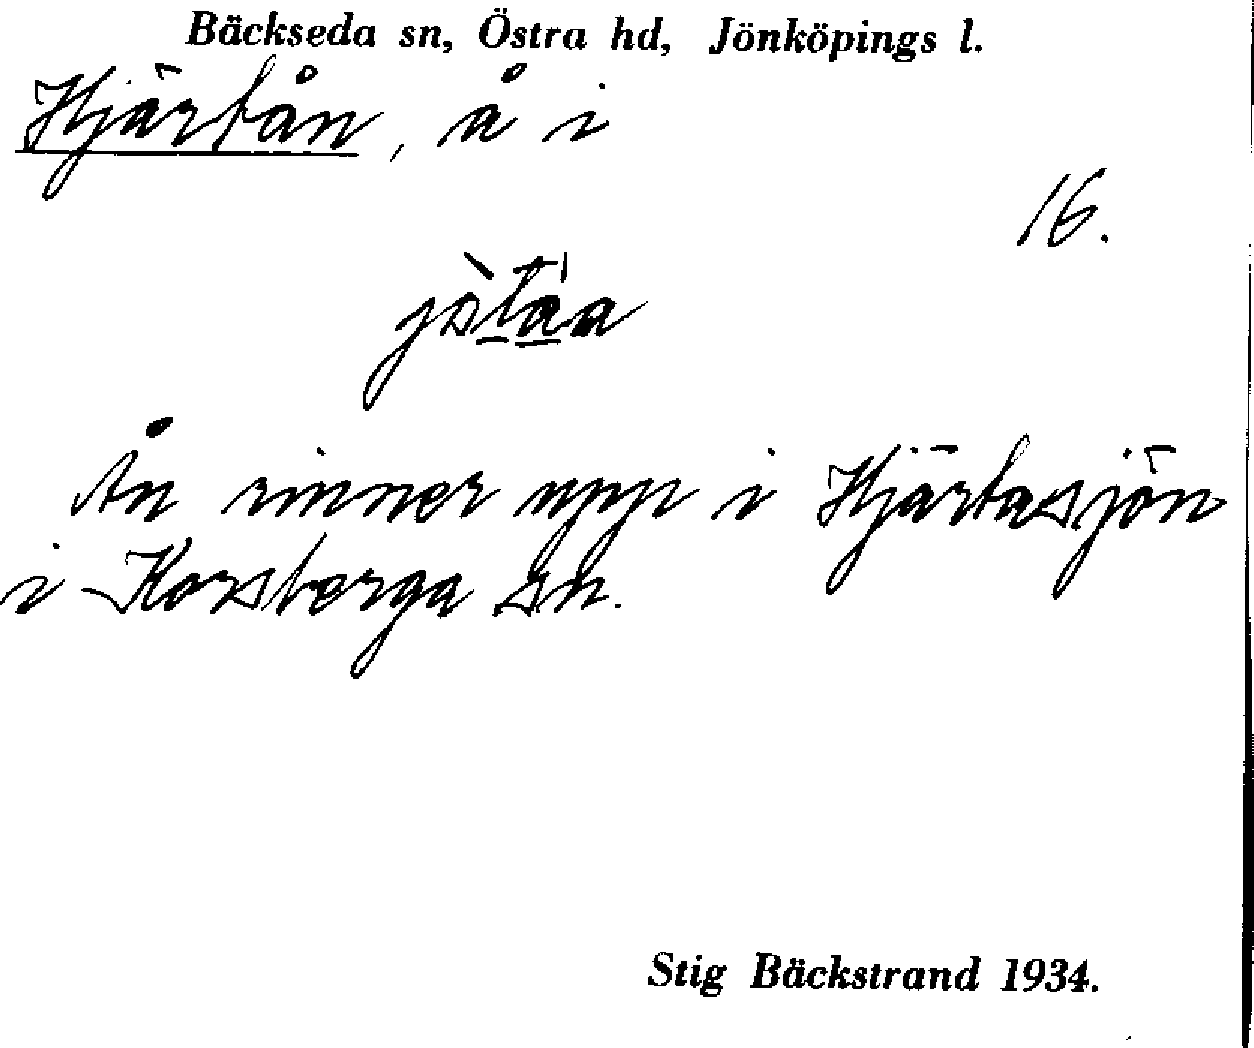 Bäckseda sn, Östra hd, Jönköpings l.
Hjärtån, å i
16.
Ån rinner upp i Hjärtasjön
i Korsberga sn.
Stig Bäckstrand 1934.